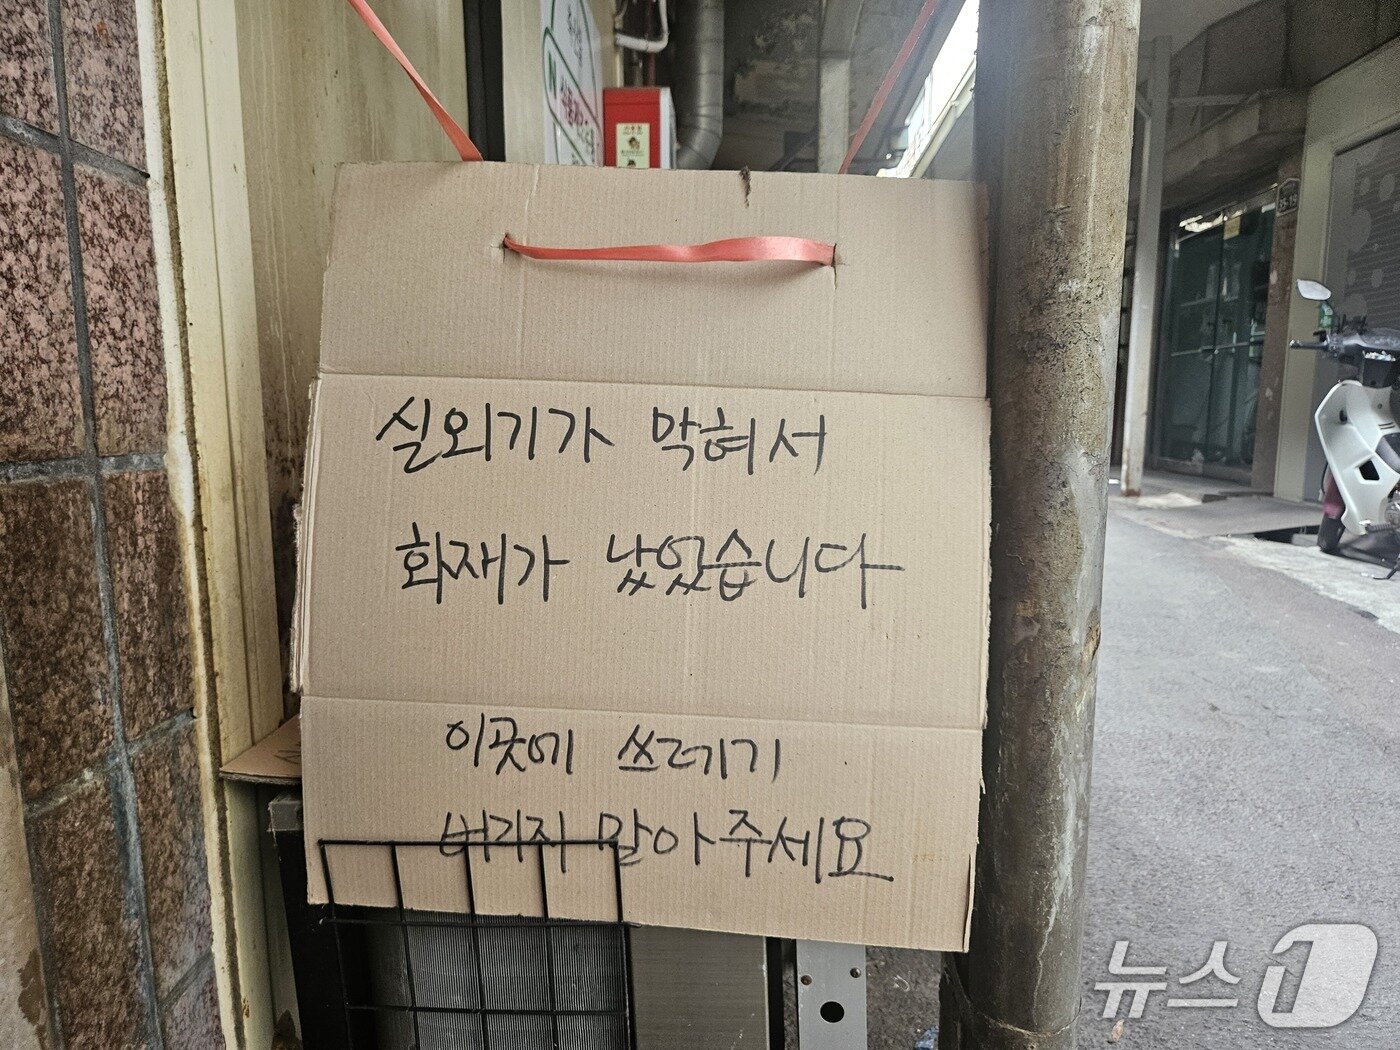 실외기가 막혀서
화재가 났었습니다
이곳에 쓰레기
버리지 말아주세요
뉴스1